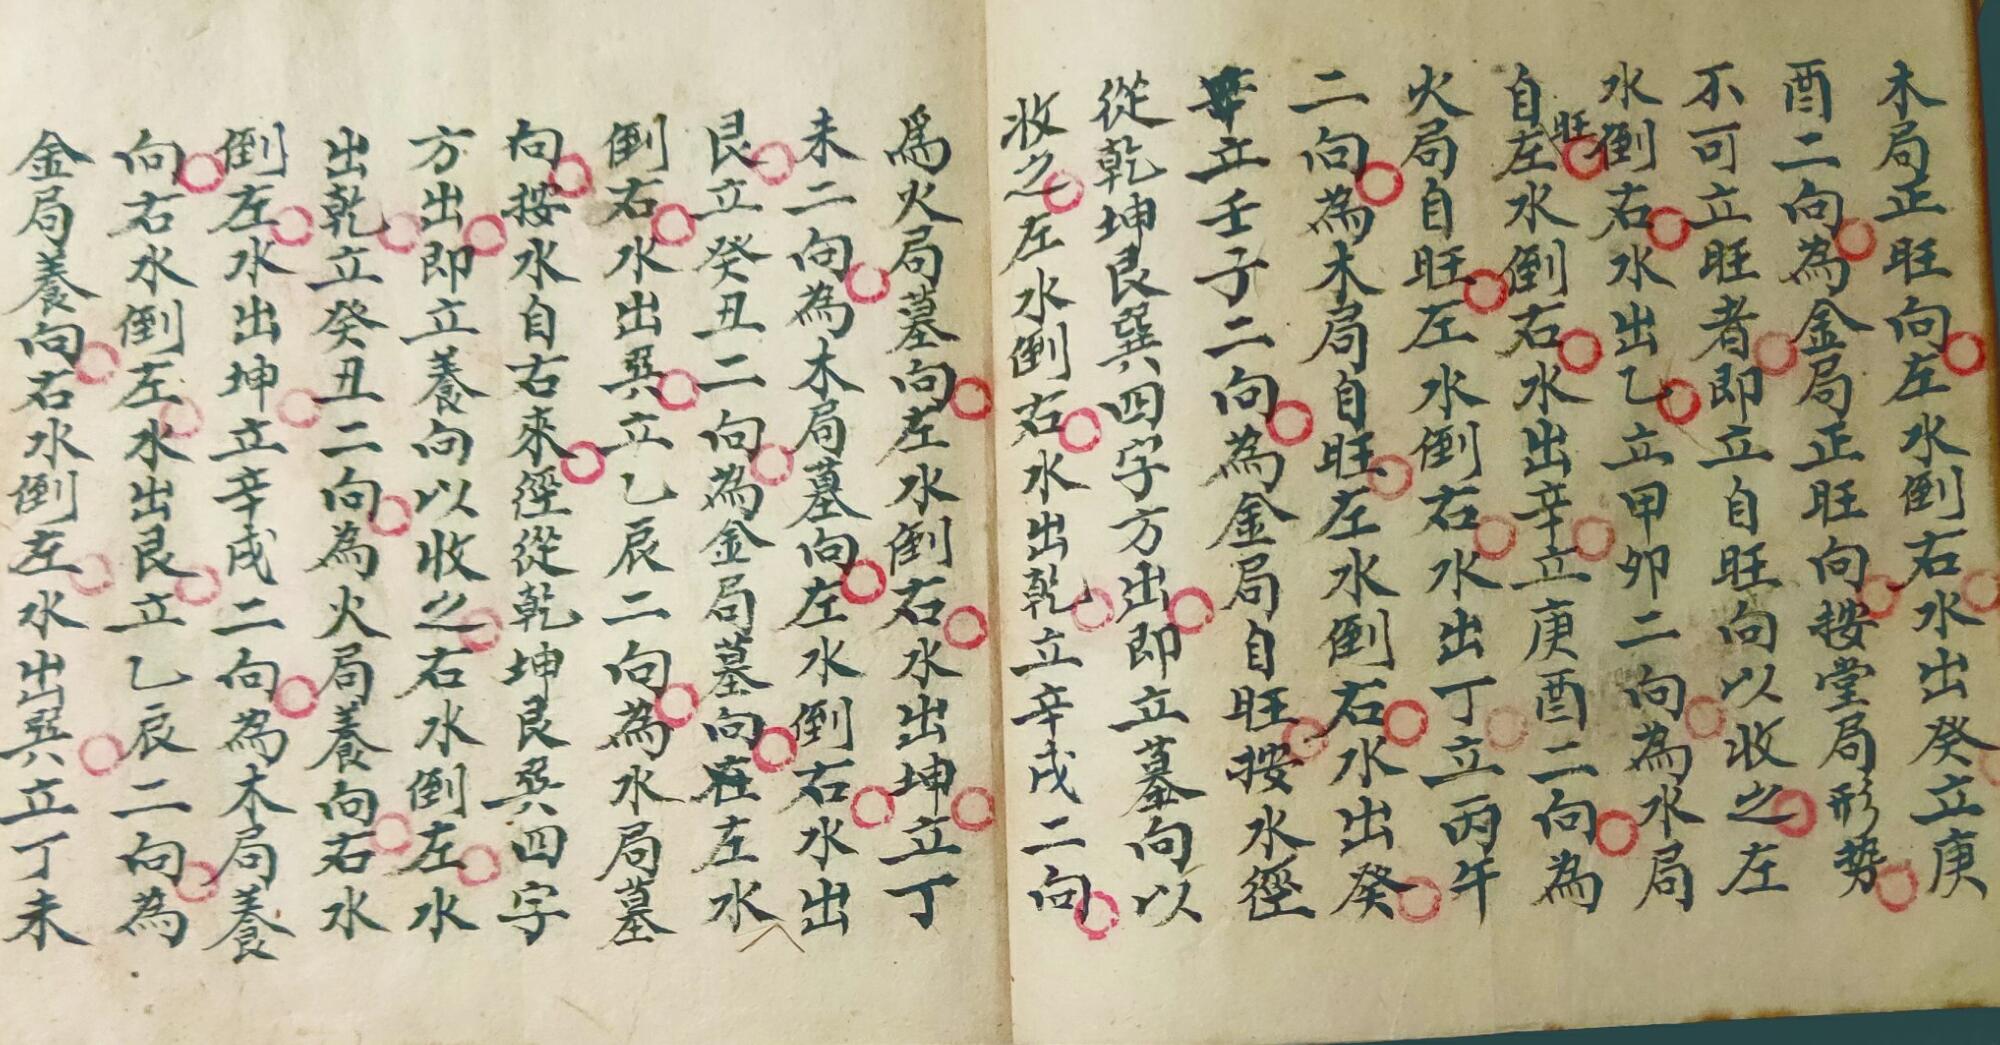 木局正旺向左水倒右水出癸立庚
酉二向為金局正旺向按堂局形势
不可立旺者即立自旺向以收之左
水倒右水出乙立甲卯二向為水局
自旺左水倒右水出辛立庚酉二向為
火局自旺左水倒右水出丁立丙午
二向為木局自旺左水倒右水出癸
立壬子二向為金局自旺按水徑
從乾坤艮巽四字方出即立墓向以
收之左水倒右水出乾立辛戌二向
爲火局墓向左水倒右水出坤立丁
未二向為木局墓向左水倒右水出
艮立癸丑二向為金局墓向左水
倒右水出巽立乙辰二向為水局墓
向按水自右來徑從乾坤艮巽四字
方出即立養向以收之右水倒左水
出乾立癸丑二向為火局養向右水
倒左水出坤立辛戌二向為木局養
向右水倒左水出艮立乙辰二向為
金局養向右水倒左水出巽立丁未